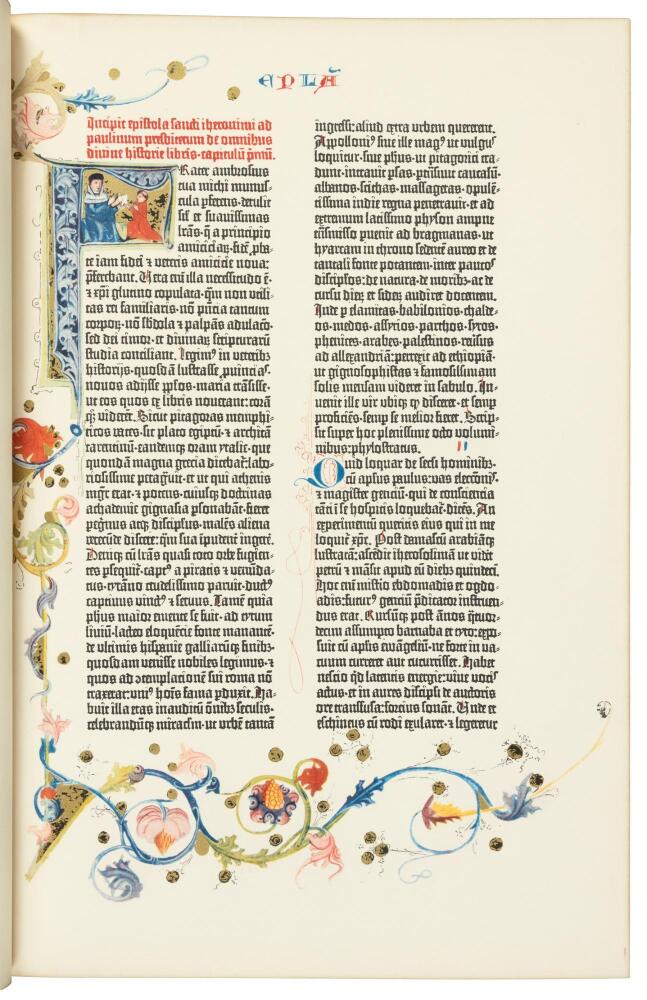 EPLĀ
Incipit epistola sancti iheronimi ad
paulinum presbiterum de omnibus
divine historie libris·capitulū pmū.
Frater ambrosius
tua michi munus-
cula pferens·detulit
sil' et suavissimas
lrās·q̄ a principio
amiciciaȝ·fidē pba-
te iam fidei et veteris amicicie nova:
pferebant. Vera enī illa necessitudo ē·
⁊ xpi glutino copulata·qm̄ non utili-
tas rei familiaris·nō pntia tantum
corporȝ·nō sbdola ⁊ palpās adulacō·
sed dei timor·et divinaȝ scripturarū
studia conciliant. Legim⁹ in veteribȝ
historijs·quosdā lustrasse puincias·
novos adijsse pplos·maria trāsisse·
ut eos quos ex libris noverant: corā
qȝ viderēt. Sicut pitagoras memphi-
ticos vates·sic plato egiptū·⁊ architā
tarentinū·eandemqȝ oram ytalie·que
quondā magna grecia dicebat̄: labo-
riosissime peragavit·et ut qui athenis
mgr̄ erat·⁊ potens·cuiusqȝ doctrinas
achademie gignasia psonabāt·fieret
pegrinus atqȝ discipulus·malēs aliena
verecūde discere: qm̄ sua ipudent̄ ingere.
Deniqȝ cū lrās quasi toto orbe fugien-
tes psequit̄·capt⁹ a piratis ⁊ venūda-
tus·tyrāno crudelissimo paruit·duct⁹
captivus vinct⁹ ⁊ servus. Tamē quia
phus maior emente se fuit·ad tytum
liviū·lacteo eloquēcie fonte manantē·
de ultimis hispanie galliarūqȝ finibȝ·
quosdam venisse nobiles legimus·⁊
quos ad ɔtemplacionē sui roma nō
traxerat: uni⁹ hoīs fama pduxit. Ha-
buit illa etas inauditū oībȝ seculis·
celebrandūqȝ miraclm·ut urbē tantā
ingressi: aliud extra urbem quererent.
Appolloni⁹ sive ille mag⁹ ut vulgus
loquitur·sive phus·ut pitagorici tra-
dunt·intravit psas·ptrāsivit caucasū·
albanos·scithas·massagetas·opulē-
tissima indie regna penetravit·et ad
extremum latissimo physon ampne
trāsmisso puenit ad bragmanas·ut
hyarcam in throno sedentē aureo et de
tantali fonte potantem·inter paucos
discipulos·de natura·de moribȝ·ac de
cursu dierȝ et siderȝ audiret docentem.
Inde p elamitas·babilonios·chalde-
os·medos·assyrios·parthos·syros·
phenices·arabes·palestinos·reversus
ad allexandriā: perrexit ad ethiopiā·
ut gignosophistas ⁊ famosissimam
solis mensam videret in sabulo. In-
venit ille vir ubiqȝ qȝ disceret·et semp
proficiēs·semp se melior fieret. Scrip-
sit super hoc plenissime octo volumi-
nibus: phylostratus. II
Quid loquar de secli hominibȝ·
cū aplus paulus: vas electionis·
⁊ magister gentium·qui de consciencia
tāti ī se hospitis loquebat̄·dicēs. An
experimentū queritis eius qui in me
loquit̄ xpc. Post damascū arabiāqȝ
lustratā: ascēdit iherosolimā ut vidēt
petrū ⁊ mansit apud eū diebȝ quindeci.
Hoc enī misterio ebdomadis et ogdo-
adis: futur⁹ gentiū pdicator instruen-
dus erat. Rursūqȝ post ānos quatuor-
decim assumpto barnaba et tyto: expo-
suit cū aplis evangeliū·ne forte in va-
cuum curreret aut cucurrisset. Habet
nescio qd latentis energie: vive vocis
actus·et in aures discipli de auctoris
ore transfusa: forcius sonāt. Unde et
eschineus cū rodi exularet·⁊ legeretur